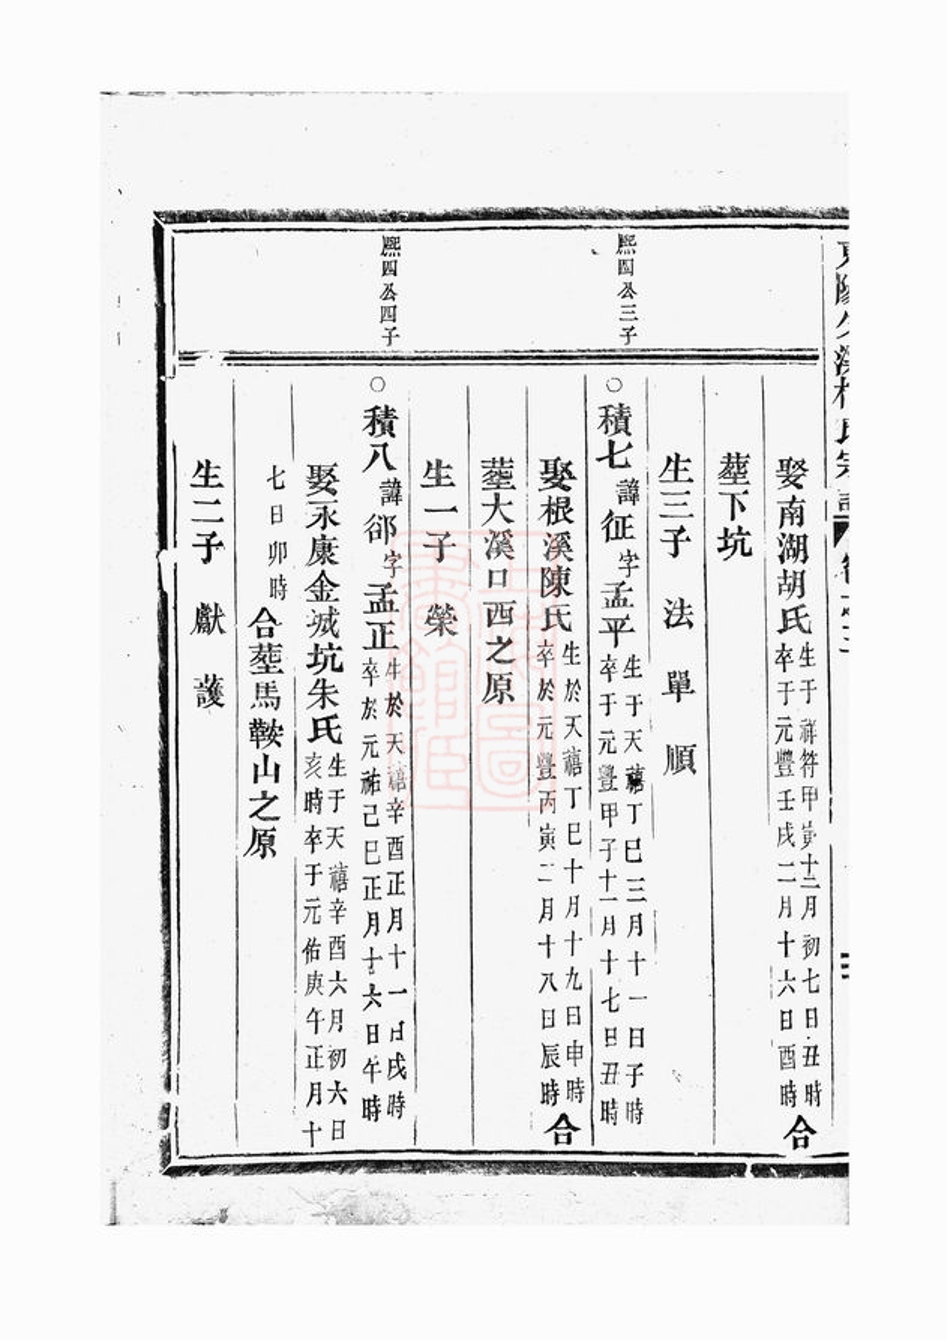 娶南湖胡氏生于祥符甲寅十二月初七日丑時卒于元豐壬戌二月十六日酉時合
塟下坑
生三子 法 單 順
熙四公三子
○積七諱征字孟平生于天禧丁巳三月十一日子時卒于元豐甲子十一月十七日丑時
娶根溪陳氏生於天禧丁巳十月十九日申時卒於元豐丙寅二月十八日辰時合
塟大溪口西之原
生一子 榮
熙四公四子
○積八諱郤字孟正生於天禧辛酉正月十一日戌時卒於元祐己巳正月十六日午時
娶永康金城坑朱氏生于天禧辛酉六月初六日亥時卒于元佑庚午正月十
七日卯時合塟馬鞍山之原
生二子 獻 護